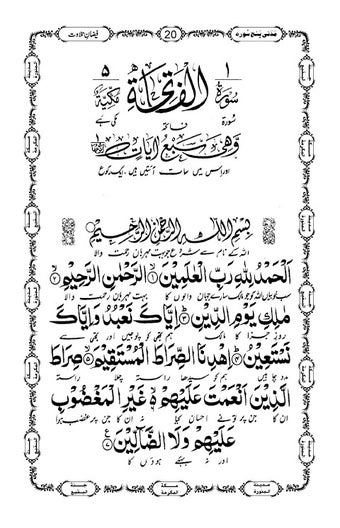 مدنی پنج سورہ 20 فیضان تلاوت
۱ سُوْرَةُ الْفَاتِحَةِ مَكِّيَّةٌ ۵
سُورۃ فاتحہ مکی ہے
وَهِيَ سَبْعُ اٰيَاتٍ
اور اس میں سات آیتیں ہیں، ایک رکوع
بِسْمِ اللّٰهِ الرَّحْمٰنِ الرَّحِيْمِ
اللہ کے نام سے شروع جو بہت مہربان رحمت والا
اَلْحَمْدُ لِلّٰهِ رَبِّ الْعٰلَمِيْنَ ۱ الرَّحْمٰنِ الرَّحِيْمِ ۲
سب خوبیاں اللہ کو جو مالک سارے جہان والوں کا بہت مہربان رحمت والا
مٰلِكِ يَوْمِ الدِّيْنِ ۳ اِيَّاكَ نَعْبُدُ وَاِيَّاكَ
روز جزا کا مالک ہم تجھی کو پوجیں اور تجھی سے
نَسْتَعِيْنُ ۴ اِهْدِنَا الصِّرَاطَ الْمُسْتَقِيْمَ ۵ صِرَاطَ
مدد چاہیں ہم کو سیدھا راستہ چلا راستہ
الَّذِيْنَ اَنْعَمْتَ عَلَيْهِمْ ۶ غَيْرِ الْمَغْضُوْبِ
ان کا جن پر تو نے احسان کیا نہ ان کا جن پر غضب ہوا
عَلَيْهِمْ وَلَا الضَّآلِّيْنَ ۷
اور نہ بہکے ہوؤں کا